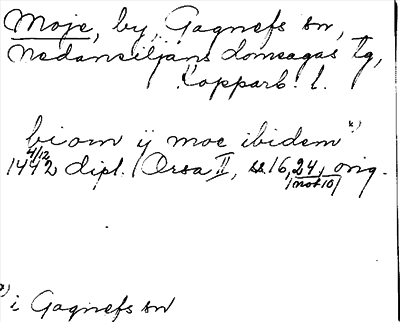 Moje, by, Gagnefs sn,
Nedansiljans domsagas tg,
Kopparb. l.
biom ij moe ibidem x)
4/12
1442 dipl. (Orsa II, ss. 16, 24, orig.
(mot 10)
x) i Gagnefs sn